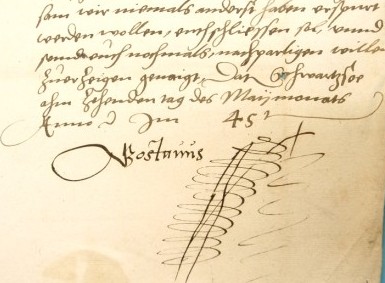 sam wir niemals anderst haben
werden wollen, entschliessen
sonder euch nochmals, nachparlichen willen
Zuerzeigen genaigt, Dat Schwartzsee
ahm Zehenden tag des Maymonats
Anno Im 45